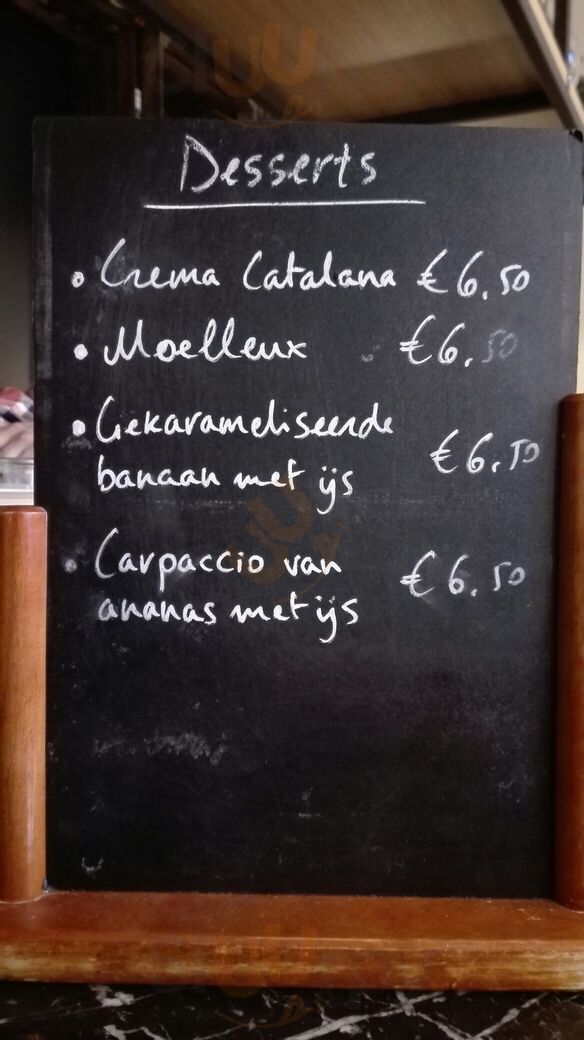 Desserts
• Crema Catalana €6.50
• Moelleux €6.50
• Gekarameliseerde
banaan met ijs €6.50
• Carpaccio van
ananas met ijs €6.50